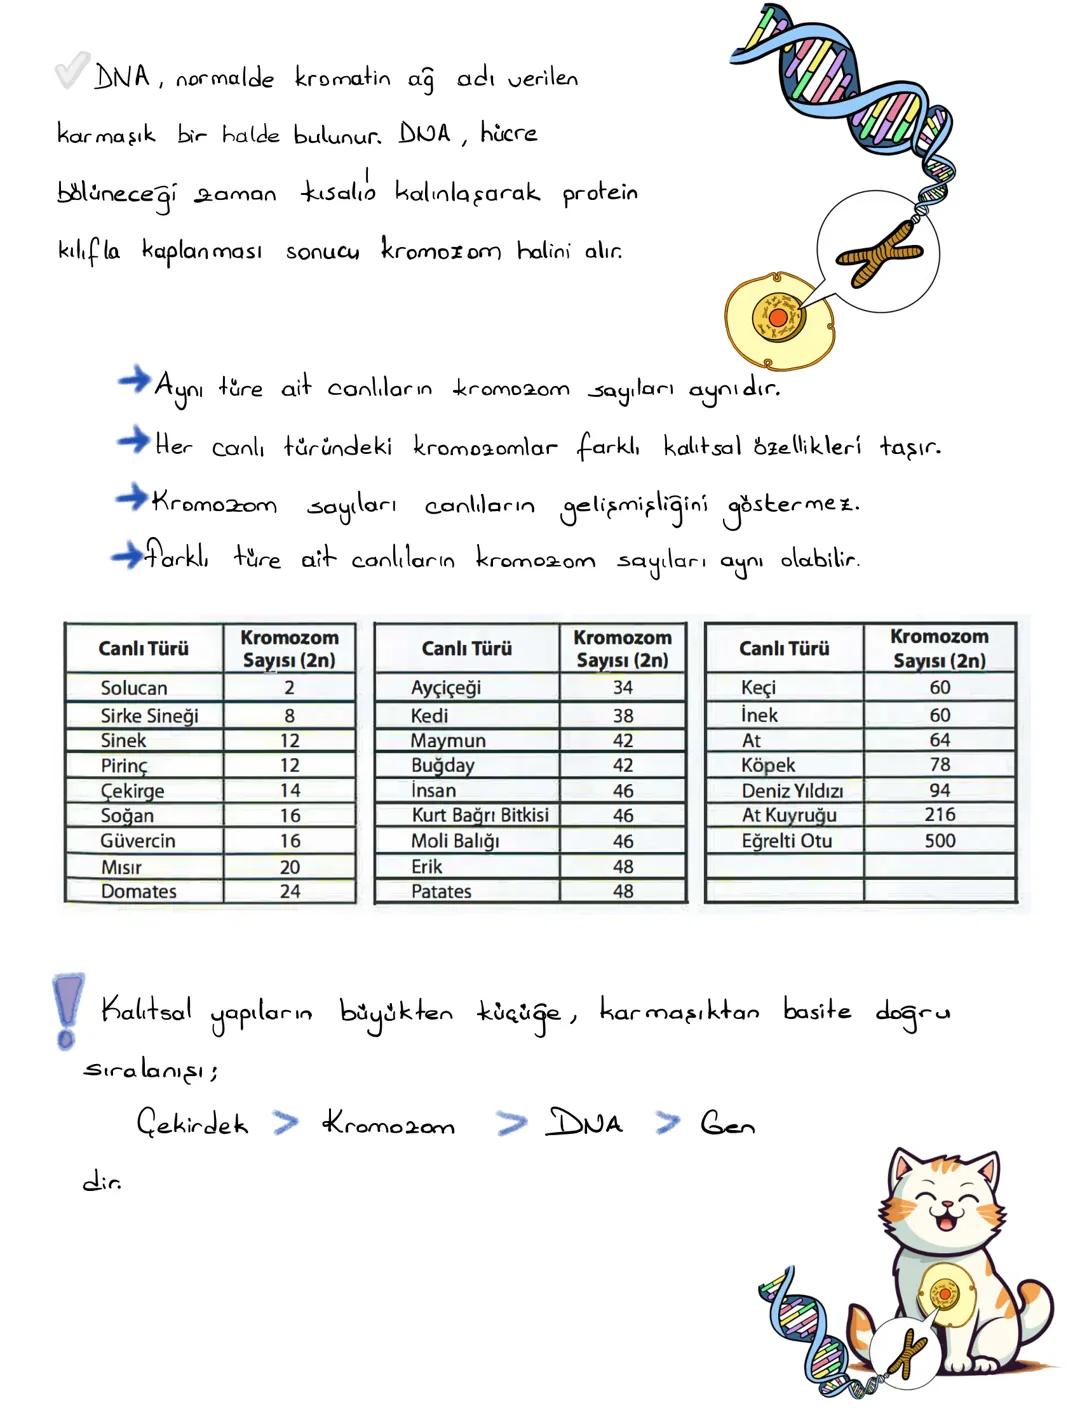 DNA, normalde kromatin ağ adı verilen
karmaşık bir halde bulunur. DNA, hücre
bölüneceği zaman kısalıp kalınlaşarak protein
kılıfla kaplanması sonucu kromozom halini alır.
Aynı türe ait canlıların kromozom sayıları aynıdır.
Her canlı türündeki kromozomlar farklı kalıtsal özellikleri taşır.
Kromozom sayıları canlıların gelişmişliğini göstermez.
Farklı türe ait canlıların kromozom sayıları aynı olabilir.
Canlı Türü Kromozom Sayısı (2n)
Solucan 2
Sirke Sineği 8
Sinek 12
Pirinç 12
Çekirge 14
Soğan 16
Güvercin 16
Mısır 20
Domates 24
Canlı Türü Kromozom Sayısı (2n)
Ayçiçeği 34
Kedi 38
Maymun 42
Buğday 42
İnsan 46
Kurt Bağrı Bitkisi 46
Moli Balığı 46
Erik 48
Patates 48
Canlı Türü Kromozom Sayısı (2n)
Keçi 60
İnek 60
At 64
Köpek 78
Deniz Yıldızı 94
At Kuyruğu 216
Eğrelti Otu 500
! Kalıtsal yapıların büyükten küçüğe, karmaşıktan basite doğru
sıralanışı;
Çekirdek > Kromozom > DNA > Gen
dir.